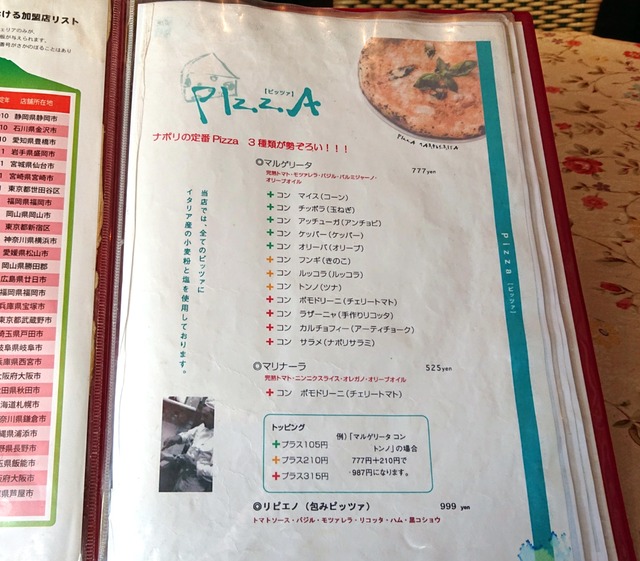 ける加盟店リスト
店舗所在地
静岡県静岡市
石川県金沢市
愛知県豊橋市
岩手県盛岡市
宮城県仙台市
宮崎県宮崎市
東京都世田谷区
福岡県福岡市
岡山県岡山市
東京都新宿区
神奈川県横浜市
愛媛県松山市
岡山県勝田郡
広島県廿日市
福岡県福岡市
兵庫県宝塚市
東京都武蔵野市
埼玉県戸田市
岐阜県岐阜市
兵庫県西宮市
大阪府大阪市
秋田県秋田市
北海道札幌市
神奈川県鎌倉市
沖縄県浦添市
長野県長野市
埼玉県飯能市
大阪府大阪市
兵庫県芦屋市
PIzzA [ピッツァ]
PIzzA MARGHERITA
ナポリの定番Pizza 3種類が勢ぞろい!!!
当店では、全てのピッツァに
イタリア産の小麦粉と塩を使用しております。
◎マルゲリータ 777yen
完熟トマト・モツァレラ・バジル・パルミジャーノ・
オリーブオイル
+コン マイス(コーン)
+コン チッポラ(玉ねぎ)
+コン アッチューガ(アンチョビ)
+コン ケッパー(ケッパー)
+コン オリーバ(オリーブ)
+コン フンギ(きのこ)
+コン ルッコラ(ルッコラ)
+コン トンノ(ツナ)
+コン ポモドリーニ(チェリートマト)
+コン ラザーニャ(手作りリコッタ)
+コン カルチョフィー(アーティチョーク)
+コン サラメ(ナポリサラミ)
◎マリナーラ 525yen
完熟トマト・ニンニクスライス・オレガノ・オリーブオイル
+コン ポモドリーニ(チェリートマト)
トッピング
+プラス105円
+プラス210円
+プラス315円
例)「マルゲリータ コン
トンノ」の場合
777円+210円で
987円になります。
◎リピエノ(包みピッツァ) 999 yen
トマトソース・バジル・モツァレラ・リコッタ・ハム・黒コショウ
Pizza [ピッツァ]